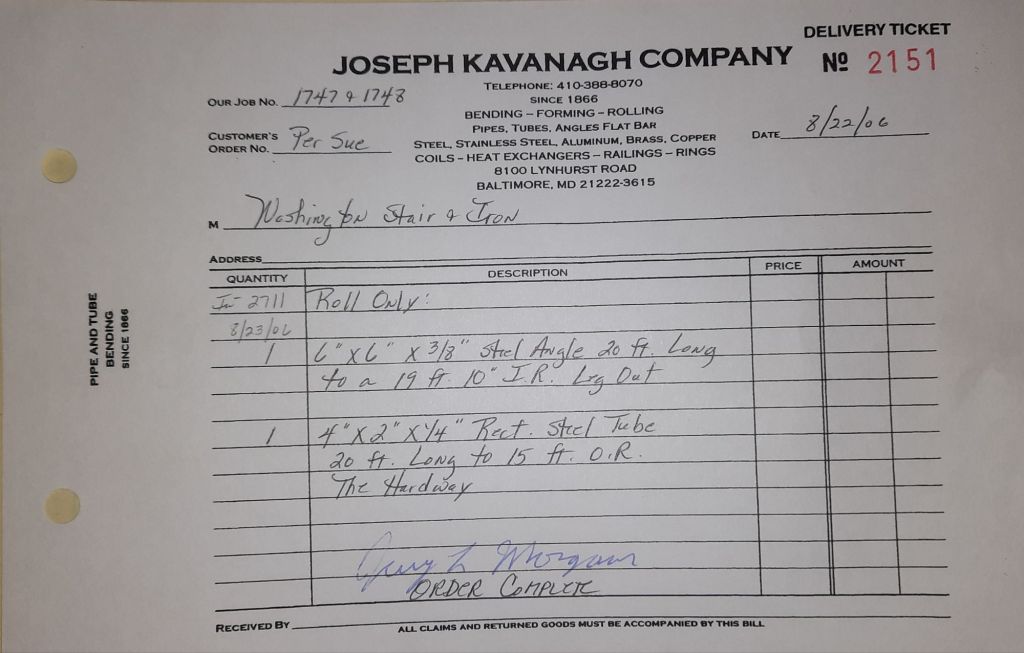 DELIVERY TICKET
JOSEPH KAVANAGH COMPANY
Nº 2151
TELEPHONE: 410-388-8070
SINCE 1866
OUR JOB NO. 1747 & 1748
BENDING – FORMING – ROLLING
PIPES, TUBES, ANGLES FLAT BAR
CUSTOMER'S ORDER NO. Per Sue
DATE 8/22/06
STEEL, STAINLESS STEEL, ALUMINUM, BRASS, COPPER
COILS – HEAT EXCHANGERS – RAILINGS – RINGS
8100 LYNHURST ROAD
BALTIMORE, MD 21222-3615
M Washington Stair & Iron
ADDRESS
QUANTITY DESCRIPTION PRICE AMOUNT
2711 Roll Only:
8/23/06
1 6" X 6" X 3/8" Steel Angle 20 ft. Long
to a 19 ft. 10" I.R. Leg Out
1 4" X 2" X 1/4" Rect. Steel Tube
20 ft. Long to 15 ft. O.R.
The Hardway
L Morgan
ORDER COMPLETE
RECEIVED BY
ALL CLAIMS AND RETURNED GOODS MUST BE ACCOMPANIED BY THIS BILL
PIPE AND TUBE
BENDING
SINCE 1866